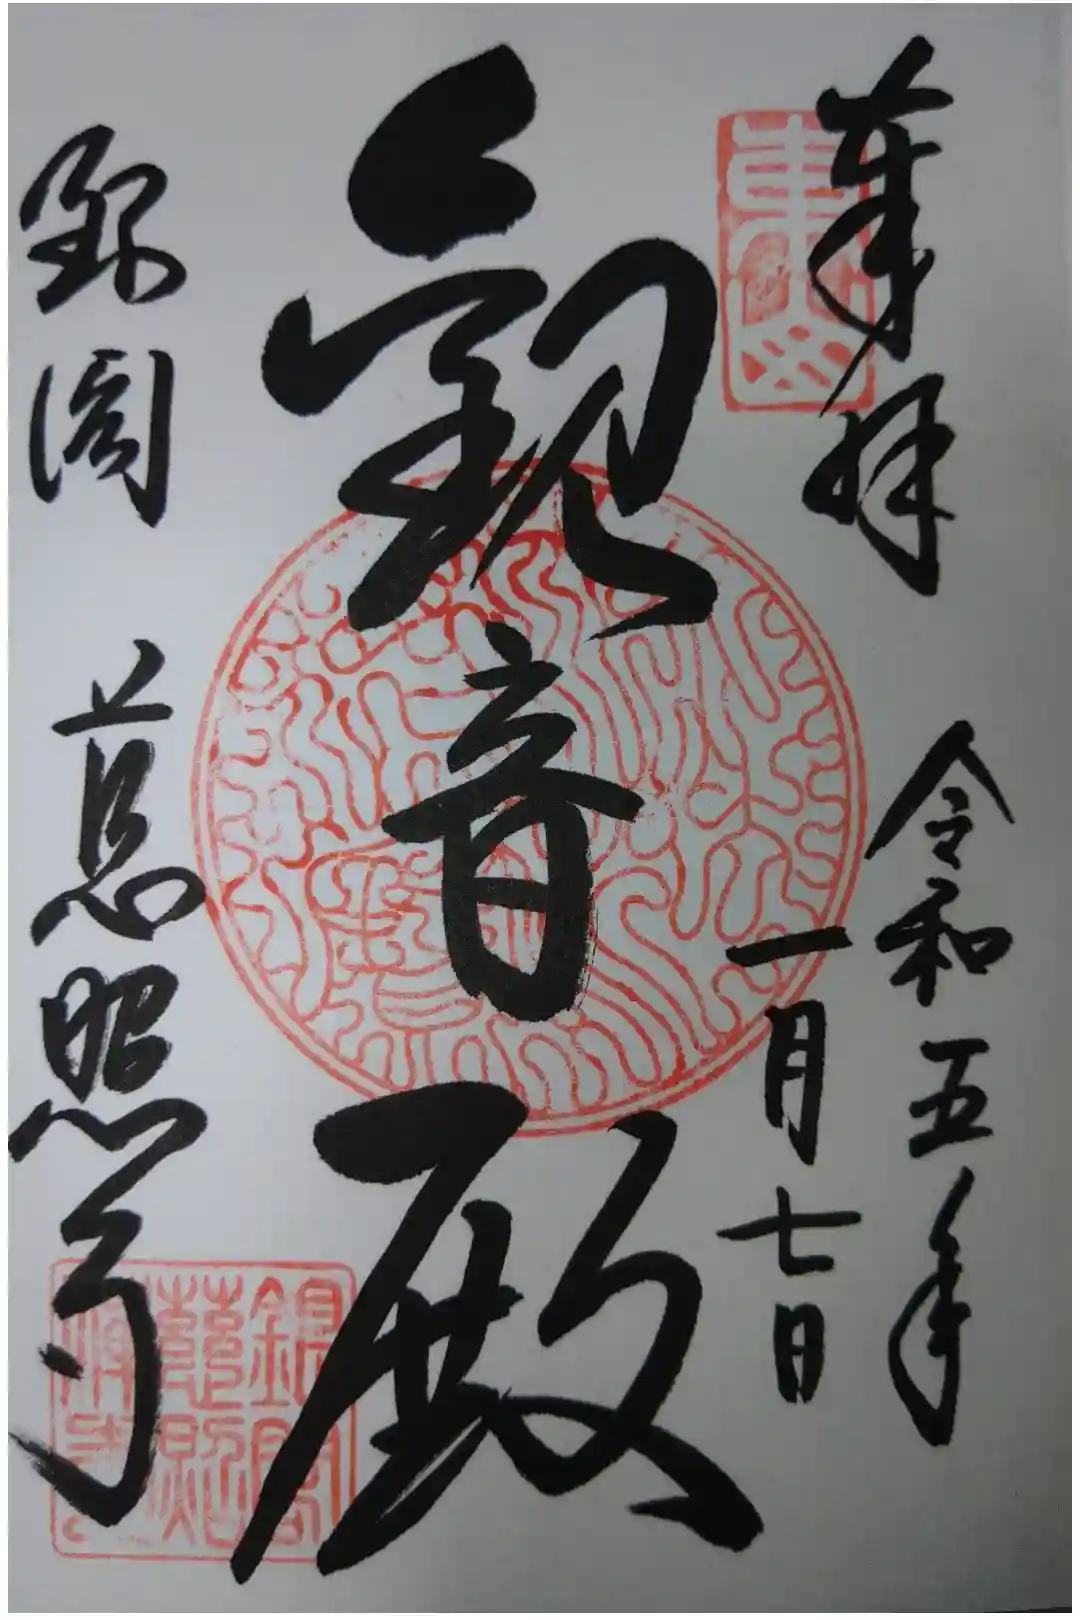 奉拝
令和五年
一月七日
観音殿
銀閣 慈照寺
東山
銀閣
慈照
禅寺